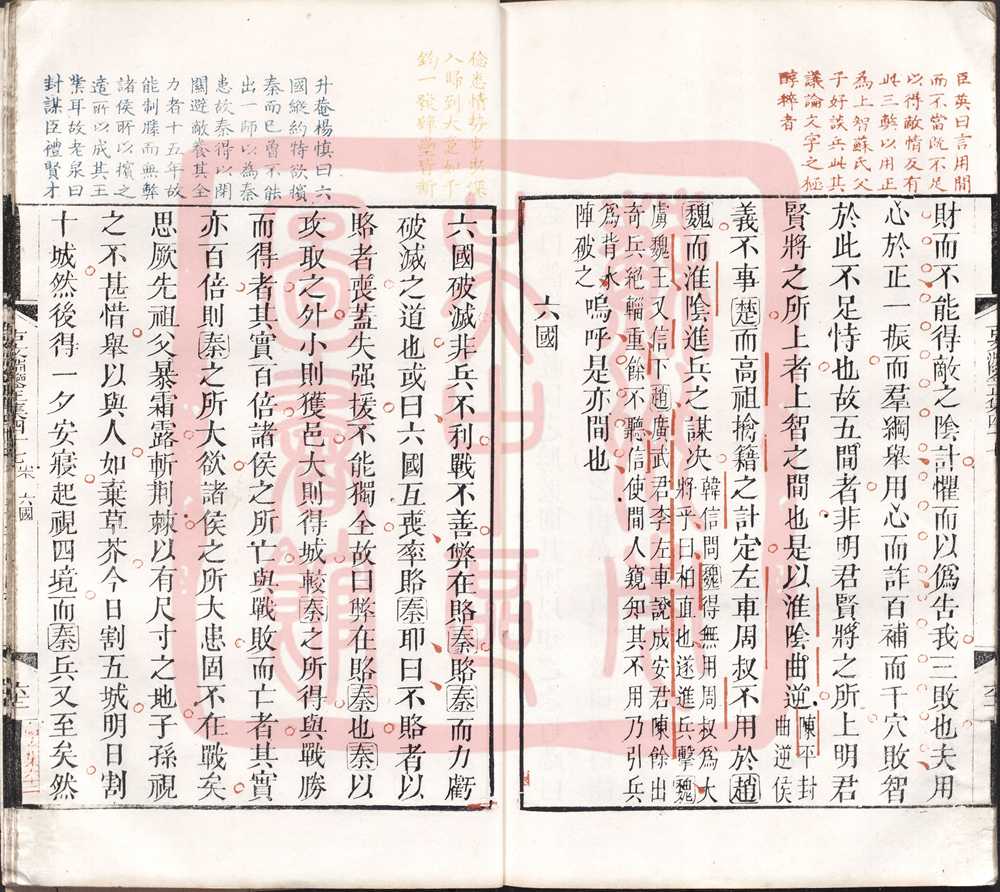 臣英曰言用間
而不當旣不足
以得敵情反有
此三敗以用正
爲上智蘇氏父
子好談兵此其
議論文字之極
醇粹者
財而不能得敵之陰計懼而以僞告我三敗也夫用
心於正一振而羣綱舉用心而詐百補而千穴敗智
於此不足恃也故五間者非明君賢將之所上明君
賢將之所上者上智之間也是以淮陰曲逆陳平封曲逆侯
義不事楚而高祖擒籍之計定左車周叔不用於趙
魏而淮陰進兵之謀决韓信問魏得無用周叔爲大將乎曰柏直也遂進兵擊魏
虜魏王又信下趙廣武君李左車說成安君陳餘出
奇兵絕輜重餘不聽信使間人窺知其不用乃引兵
爲背水
陣破之嗚呼是亦間也
六國
八歸到大意如千
鈞一髮
升菴楊慎曰六
國縱約特欲擯
秦而已曾不能
出一師以爲秦
患故秦得以閉
關避敵養其全
力者十五年故
能制勝而無弊
諸侯所以擯之
適所以成其王
業耳故老泉曰
封謀臣禮賢才
六國破滅非兵不利戰不善弊在賂秦賂秦而力虧
破滅之道也或曰六國互喪率賂秦耶曰不賂者以
賂者喪蓋失强援不能獨全故曰弊在賂秦也秦以
攻取之外小則獲邑大則得城較秦之所得與戰勝
而得者其實百倍諸侯之所亡與戰敗而亡者其實
亦百倍則秦之所大欲諸侯之所大患固不在戰矣
思厥先祖父暴霜露斬荆棘以有尺寸之地子孫視
之不甚惜舉以與人如棄草芥今日割五城明日割
十城然後得一夕安寢起視四境而秦兵又至矣然
六國